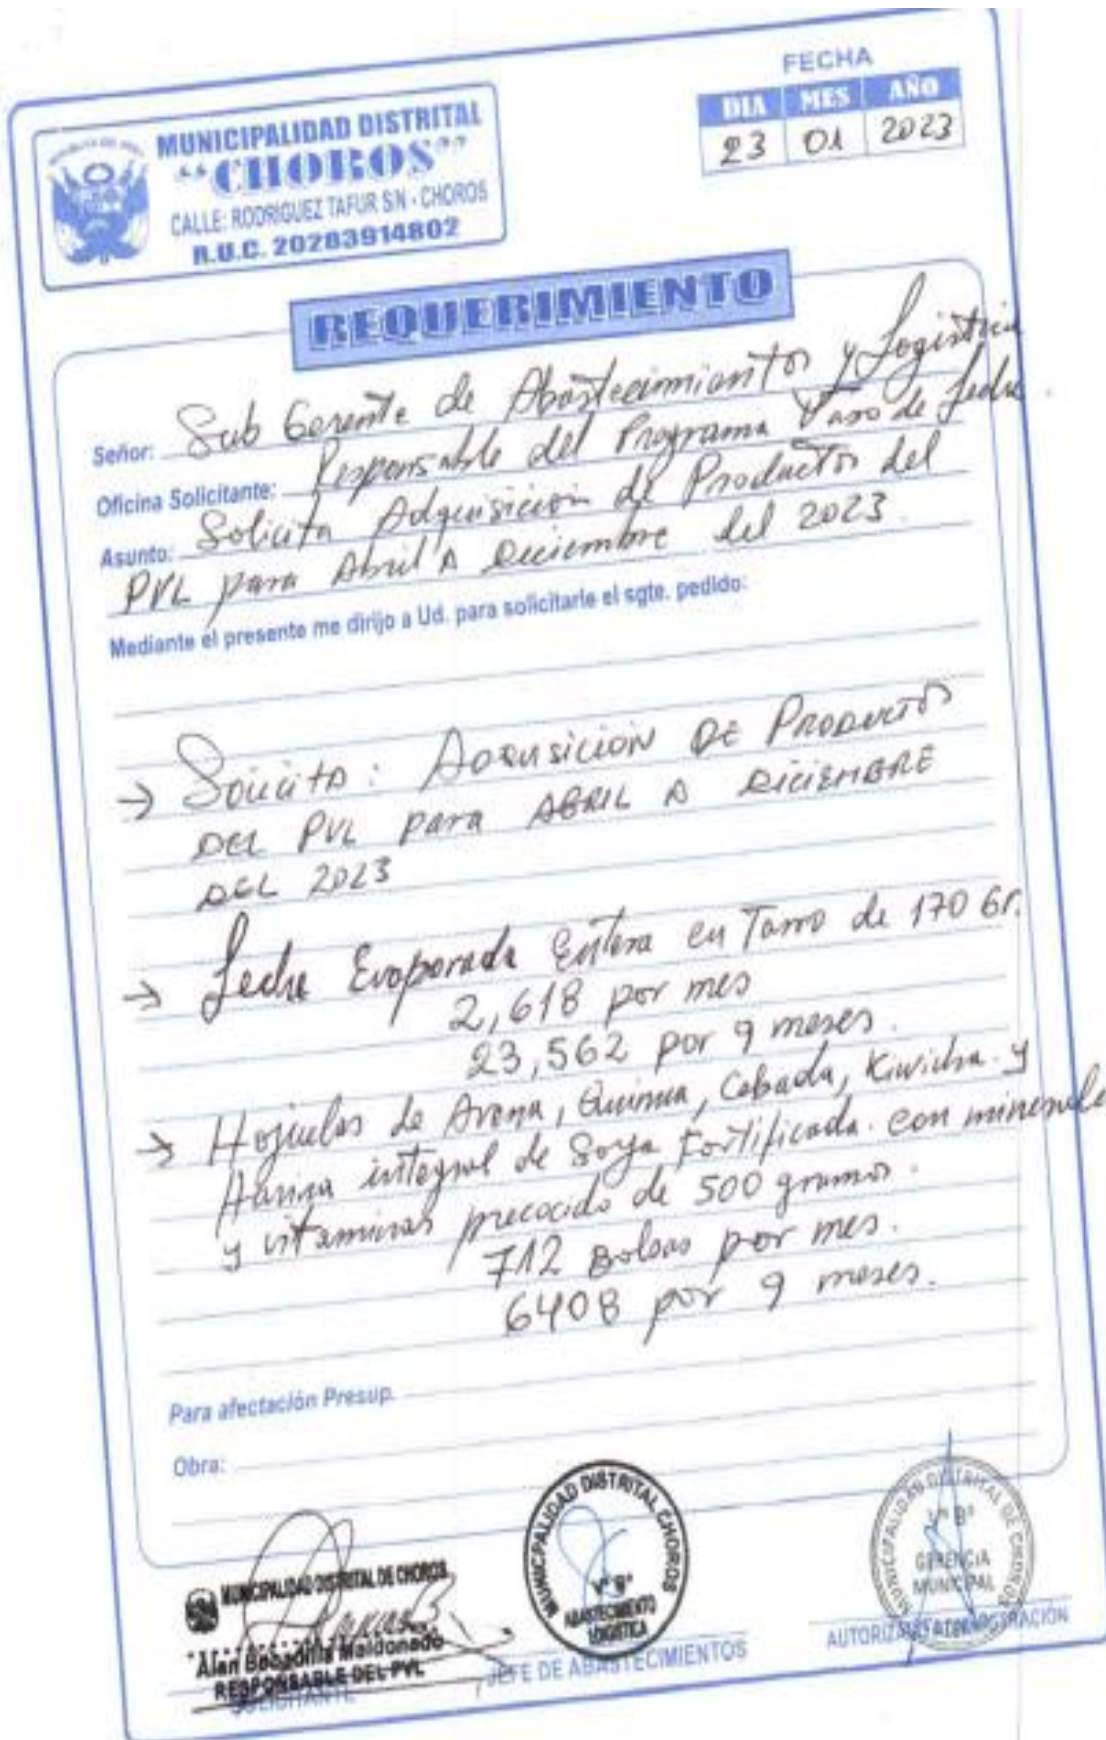 FECHA
DIA MES AÑO
23 01 2023
MUNICIPALIDAD DISTRITAL
"CHOROS"
CALLE: RODRIGUEZ TAFUR S.N - CHOROS
R.U.C. 20283914802
REQUERIMIENTO
Señor: Sub Gerente de Abastecimientos y Logistica
Oficina Solicitante: Responsable del Programa Vaso de Leche.
Asunto: Solicita Adquisición de Productos del
PVL para Abril A Diciembre del 2023
Mediante el presente me dirijo a Ud. para solicitarle el sgte. pedido:
→ Solicito: Adqusicion DE PRODUCTOS
DEL PVL para ABRIL A DICIEMBRE
DEL 2023
→ Leche Evaporada Entera en Tarro de 170 Gr.
2,618 por mes
23,562 por 9 meses.
→ Hojuelas de Avena, Quinua, Cebada, Kiwicha y
Harina integral de Soya Fortificada con minerales
y vitaminas precocido de 500 gramos.
712 Bolsas por mes.
6408 por 9 meses.
Para afectación Presup.
Obra:
MUNICIPALIDAD DISTRITAL DE CHOROS
Alan Bobadilla Maldonado
RESPONSABLE DEL PVL
SOLICITANTE
MUNICIPALIDAD DISTRITAL CHOROS
V° B°
ABASTECIMIENTO
LOGISTICA
JEFE DE ABASTECIMIENTOS
MUNICIPALIDAD DISTRITAL DE CHOROS
V° B°
GERENCIA
MUNICIPAL